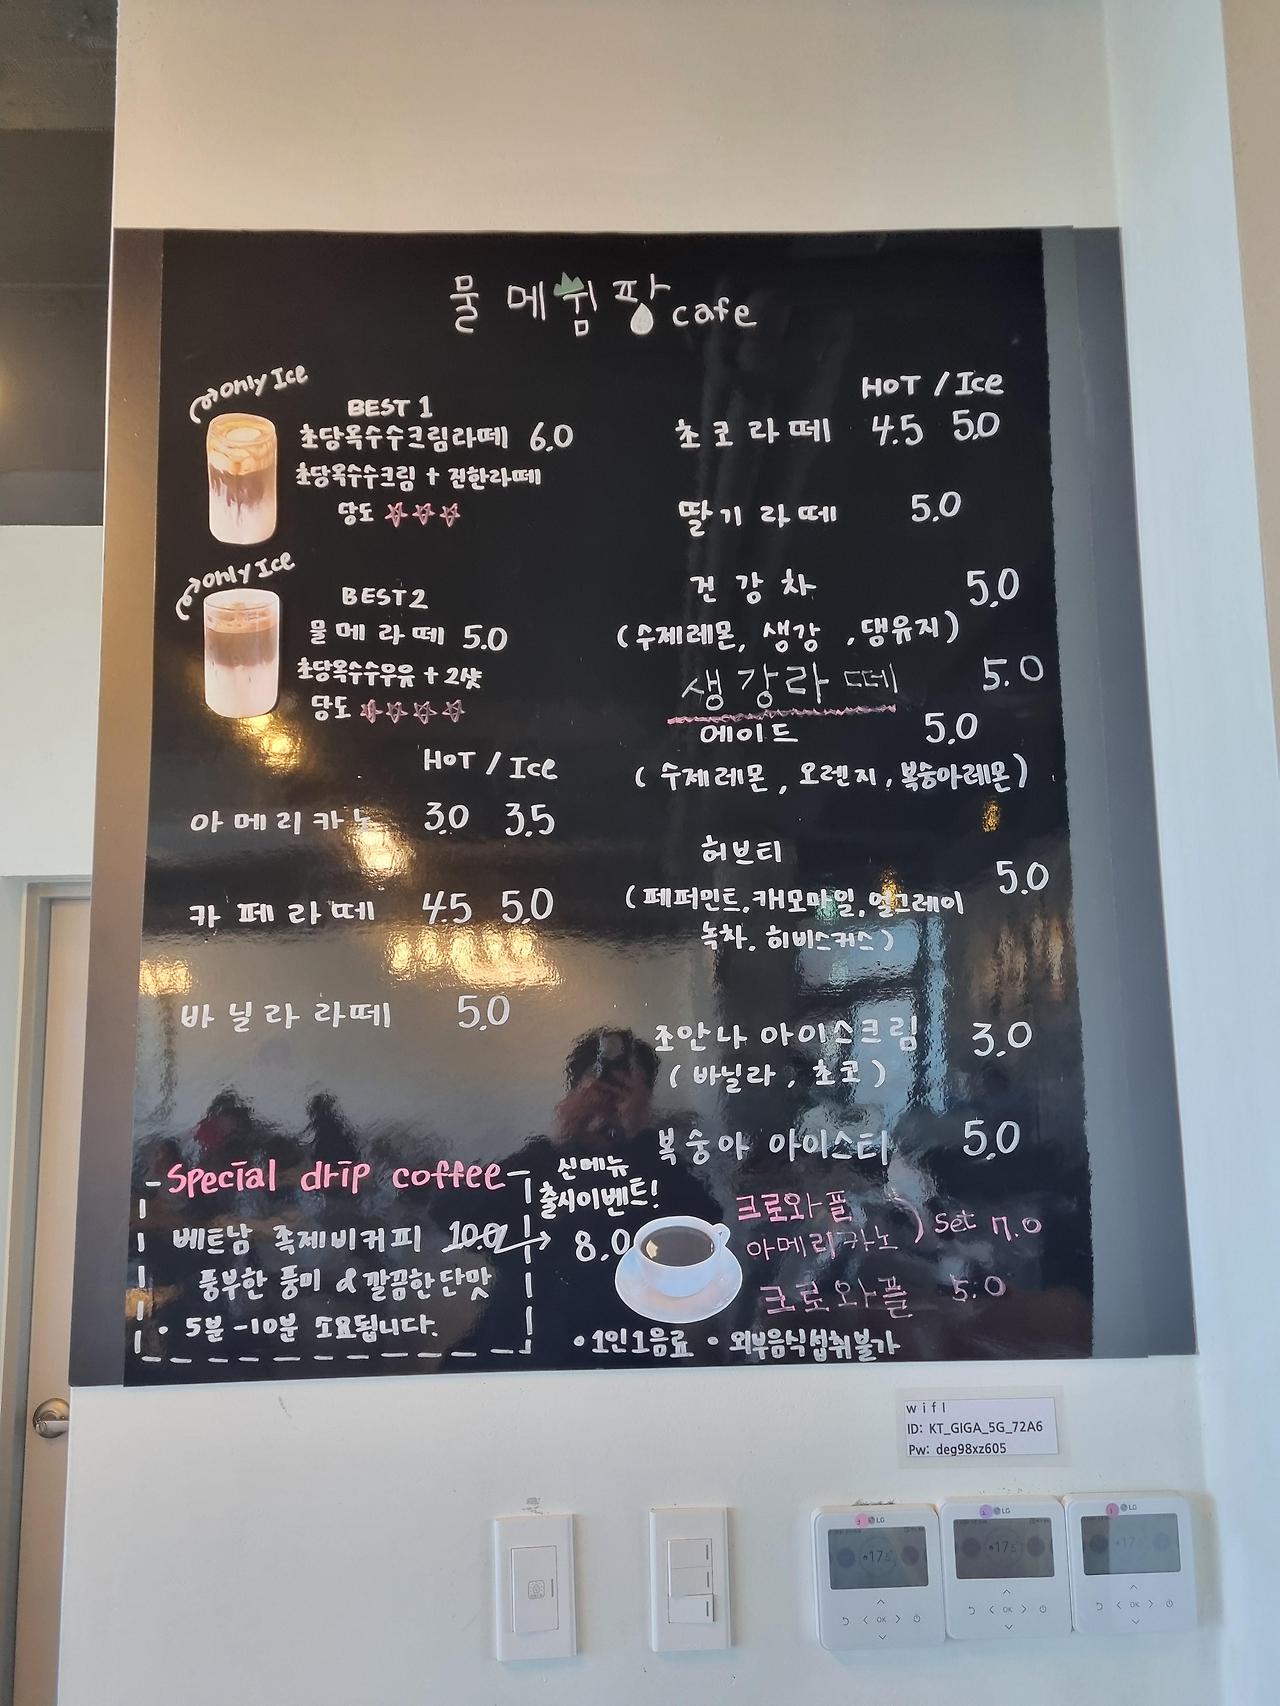 물메쉼팡 cafe
only Ice
BEST 1
초당옥수수크림라떼 6.0
초당옥수수크림 + 진한라떼
당도 ☆☆☆
only Ice
BEST 2
물메라떼 5.0
초당옥수수우유 + 2샷
당도 ☆☆☆☆
HOT / Ice
아메리카노 3.0 3.5
카페라떼 4.5 5.0
바닐라라떼 5.0
Special drip coffee
베트남 족제비커피 10.0 → 8.0
풍부한 풍미 & 깔끔한 단맛
• 5분-10분 소요됩니다.
신메뉴
출시이벤트!
HOT / Ice
초코라떼 4.5 5.0
딸기라떼 5.0
건강차 5.0
(수제레몬, 생강, 댕유지)
생강라떼 5.0
에이드 5.0
(수제레몬, 오렌지, 복숭아레몬)
허브티 5.0
(페퍼민트, 캐모마일, 얼그레이
녹차. 히비스커스)
조안나 아이스크림 3.0
(바닐라, 초코)
복숭아 아이스티 5.0
크로와플
아메리카노 ) Set 7.0
크로와플 5.0
• 1인1음료 • 외부음식섭취불가
wifI
ID: KT_GIGA_5G_72A6
Pw: deg98xz605
LG
17.5
LG
17.5
LG
17.5
OK
OK
OK